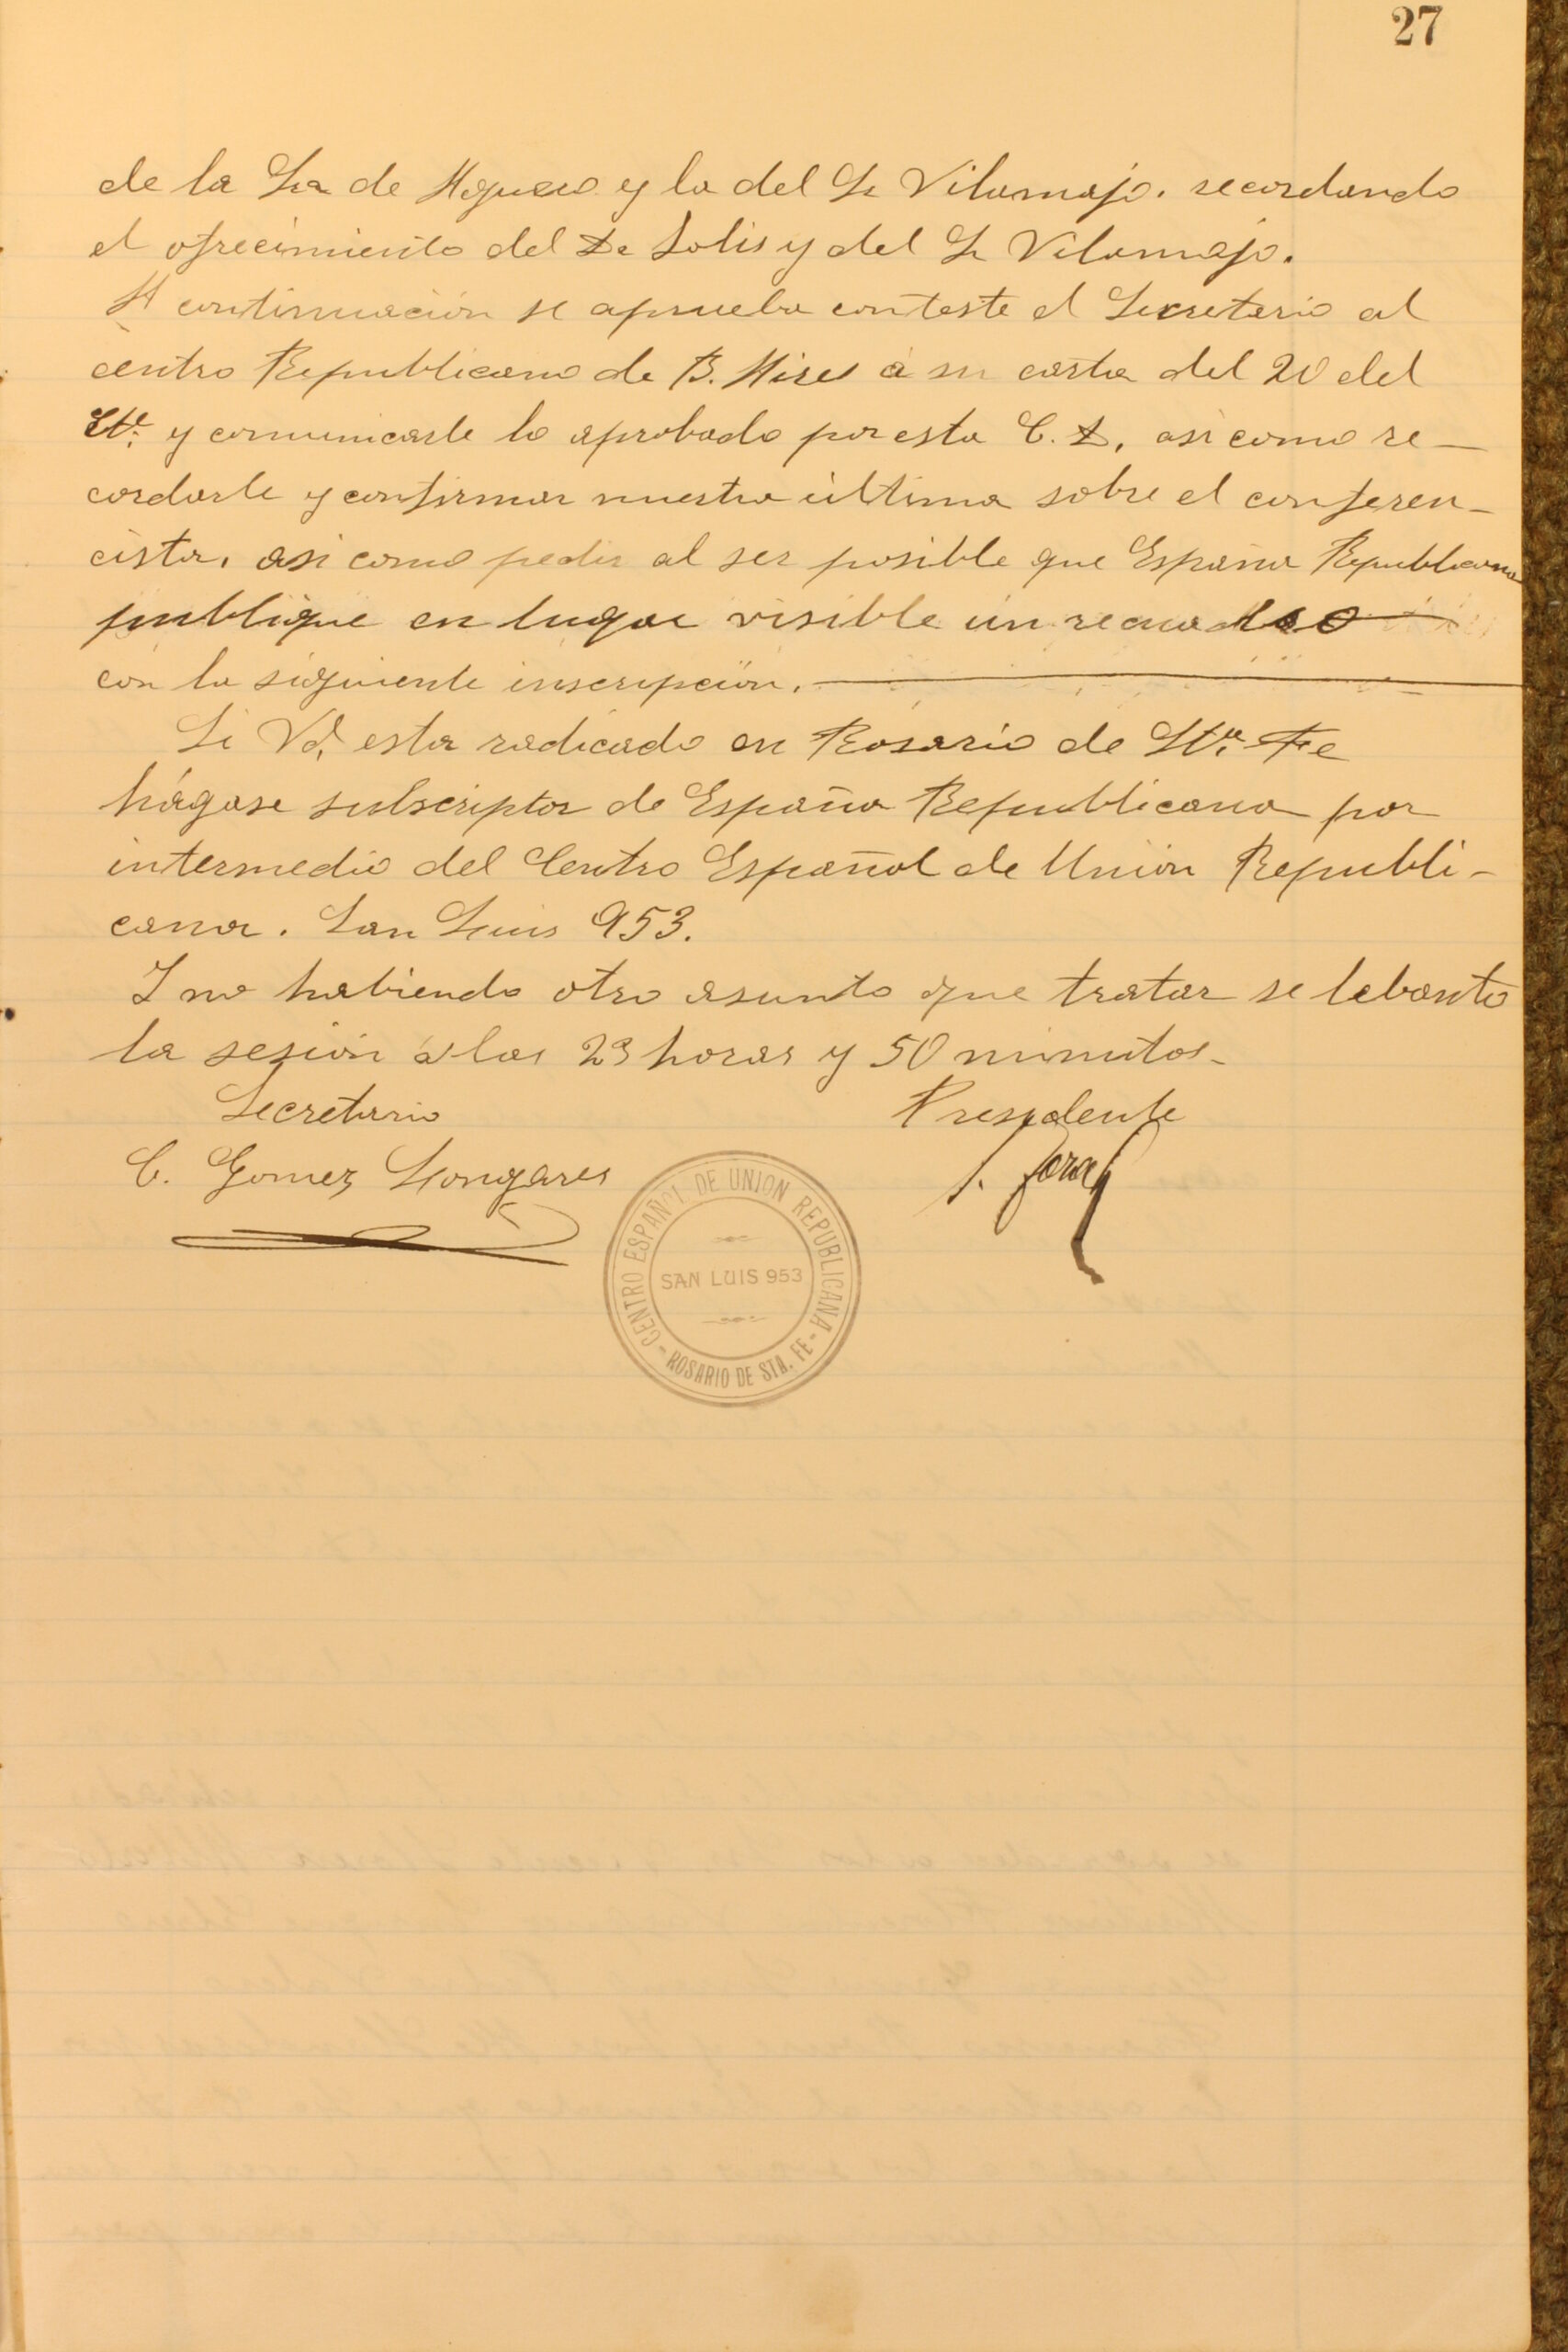 27
de la Sra de Aguero y la del Sr Vilamajo. recordando
el ofrecimiento del Dr Solis y del Sr Vilamajo.
A continuación se aprueba conteste el Secretario al
centro Republicano de B. Aires á su carta del 20 del
y comunicarle lo aprobado por esta C. D, asi como re-
cordarle y confirmar nuestra última sobre el conferen-
cista, asi como pedir al ser posible que España Republicana
publique en lugar visible un recuadro
con la siguiente inscripción.
Si Vd. esta radicado en Rosario de Sta. Fe
hágase subscriptor de España Republicana por
intermedio del Centro Español de Unión Republi-
cana. San Luis 953.
I no habiendo otro asunto que tratar se lebanto
la sesión á las 23 horas y 50 minutos-
Secretario Presidente
C. Gomez Longares
CENTRO ESPAÑOL DE UNION REPUBLICANA
SAN LUIS 953
- ROSARIO DE STA. FE -